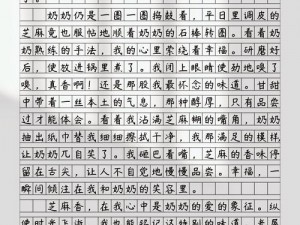 奶奶仍是一圈一圈捣鼓着，平日里调皮的
芝麻竟也服帖地顺着奶奶的石棒转圈。看着奶
奶熟练的手法，我的心里萦绕着幸福。研磨好
后，便放进锅里煮了。我闭上眼睛使劲地嗅了
嗅，真香啊！还是那股我最怀念的味道。甘甜
中带着一丝本土的气息，那种醇厚，只有品尝
过才能体会。看着我沾满芝麻糊的嘴角，奶奶
抽出纸巾替我细细擦拭干净，我那满足的模样
让奶奶几自笑了。我砸巴着嘴，芝麻的香味停
留在舌尖，让人不自觉地慢慢品尝。幸福，一
瞬间倾注在我和奶奶的笑容里。
芝麻香，在我心中是奶奶的爱的象征。纵